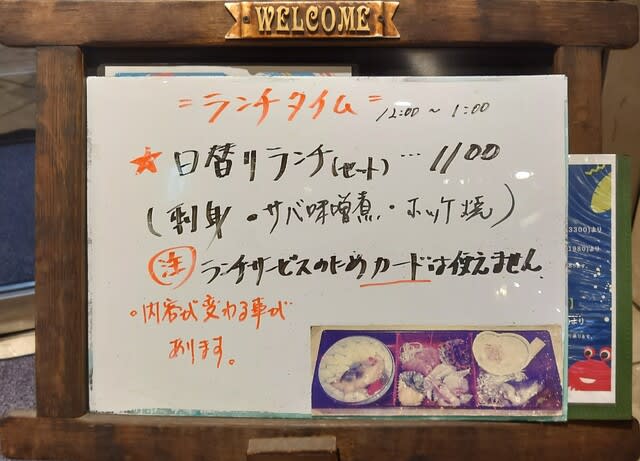 WELCOME
=ランチタイム= 12:00～1:00
★日替りランチ(セット)…1100
(刺身・サバ味噌煮・ホッケ焼)
注 ランチサービスのためカードは使えません
。内容が変わる事が
あります。
3300)より
1980)より